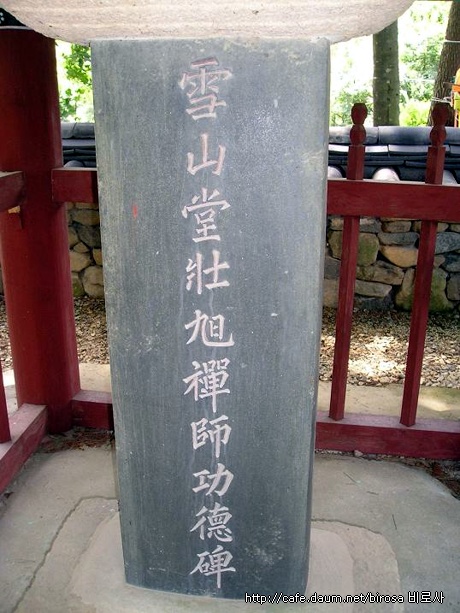 雪山堂壯旭禪師功德碑
http://cafe.daum.net/birosa 비로사